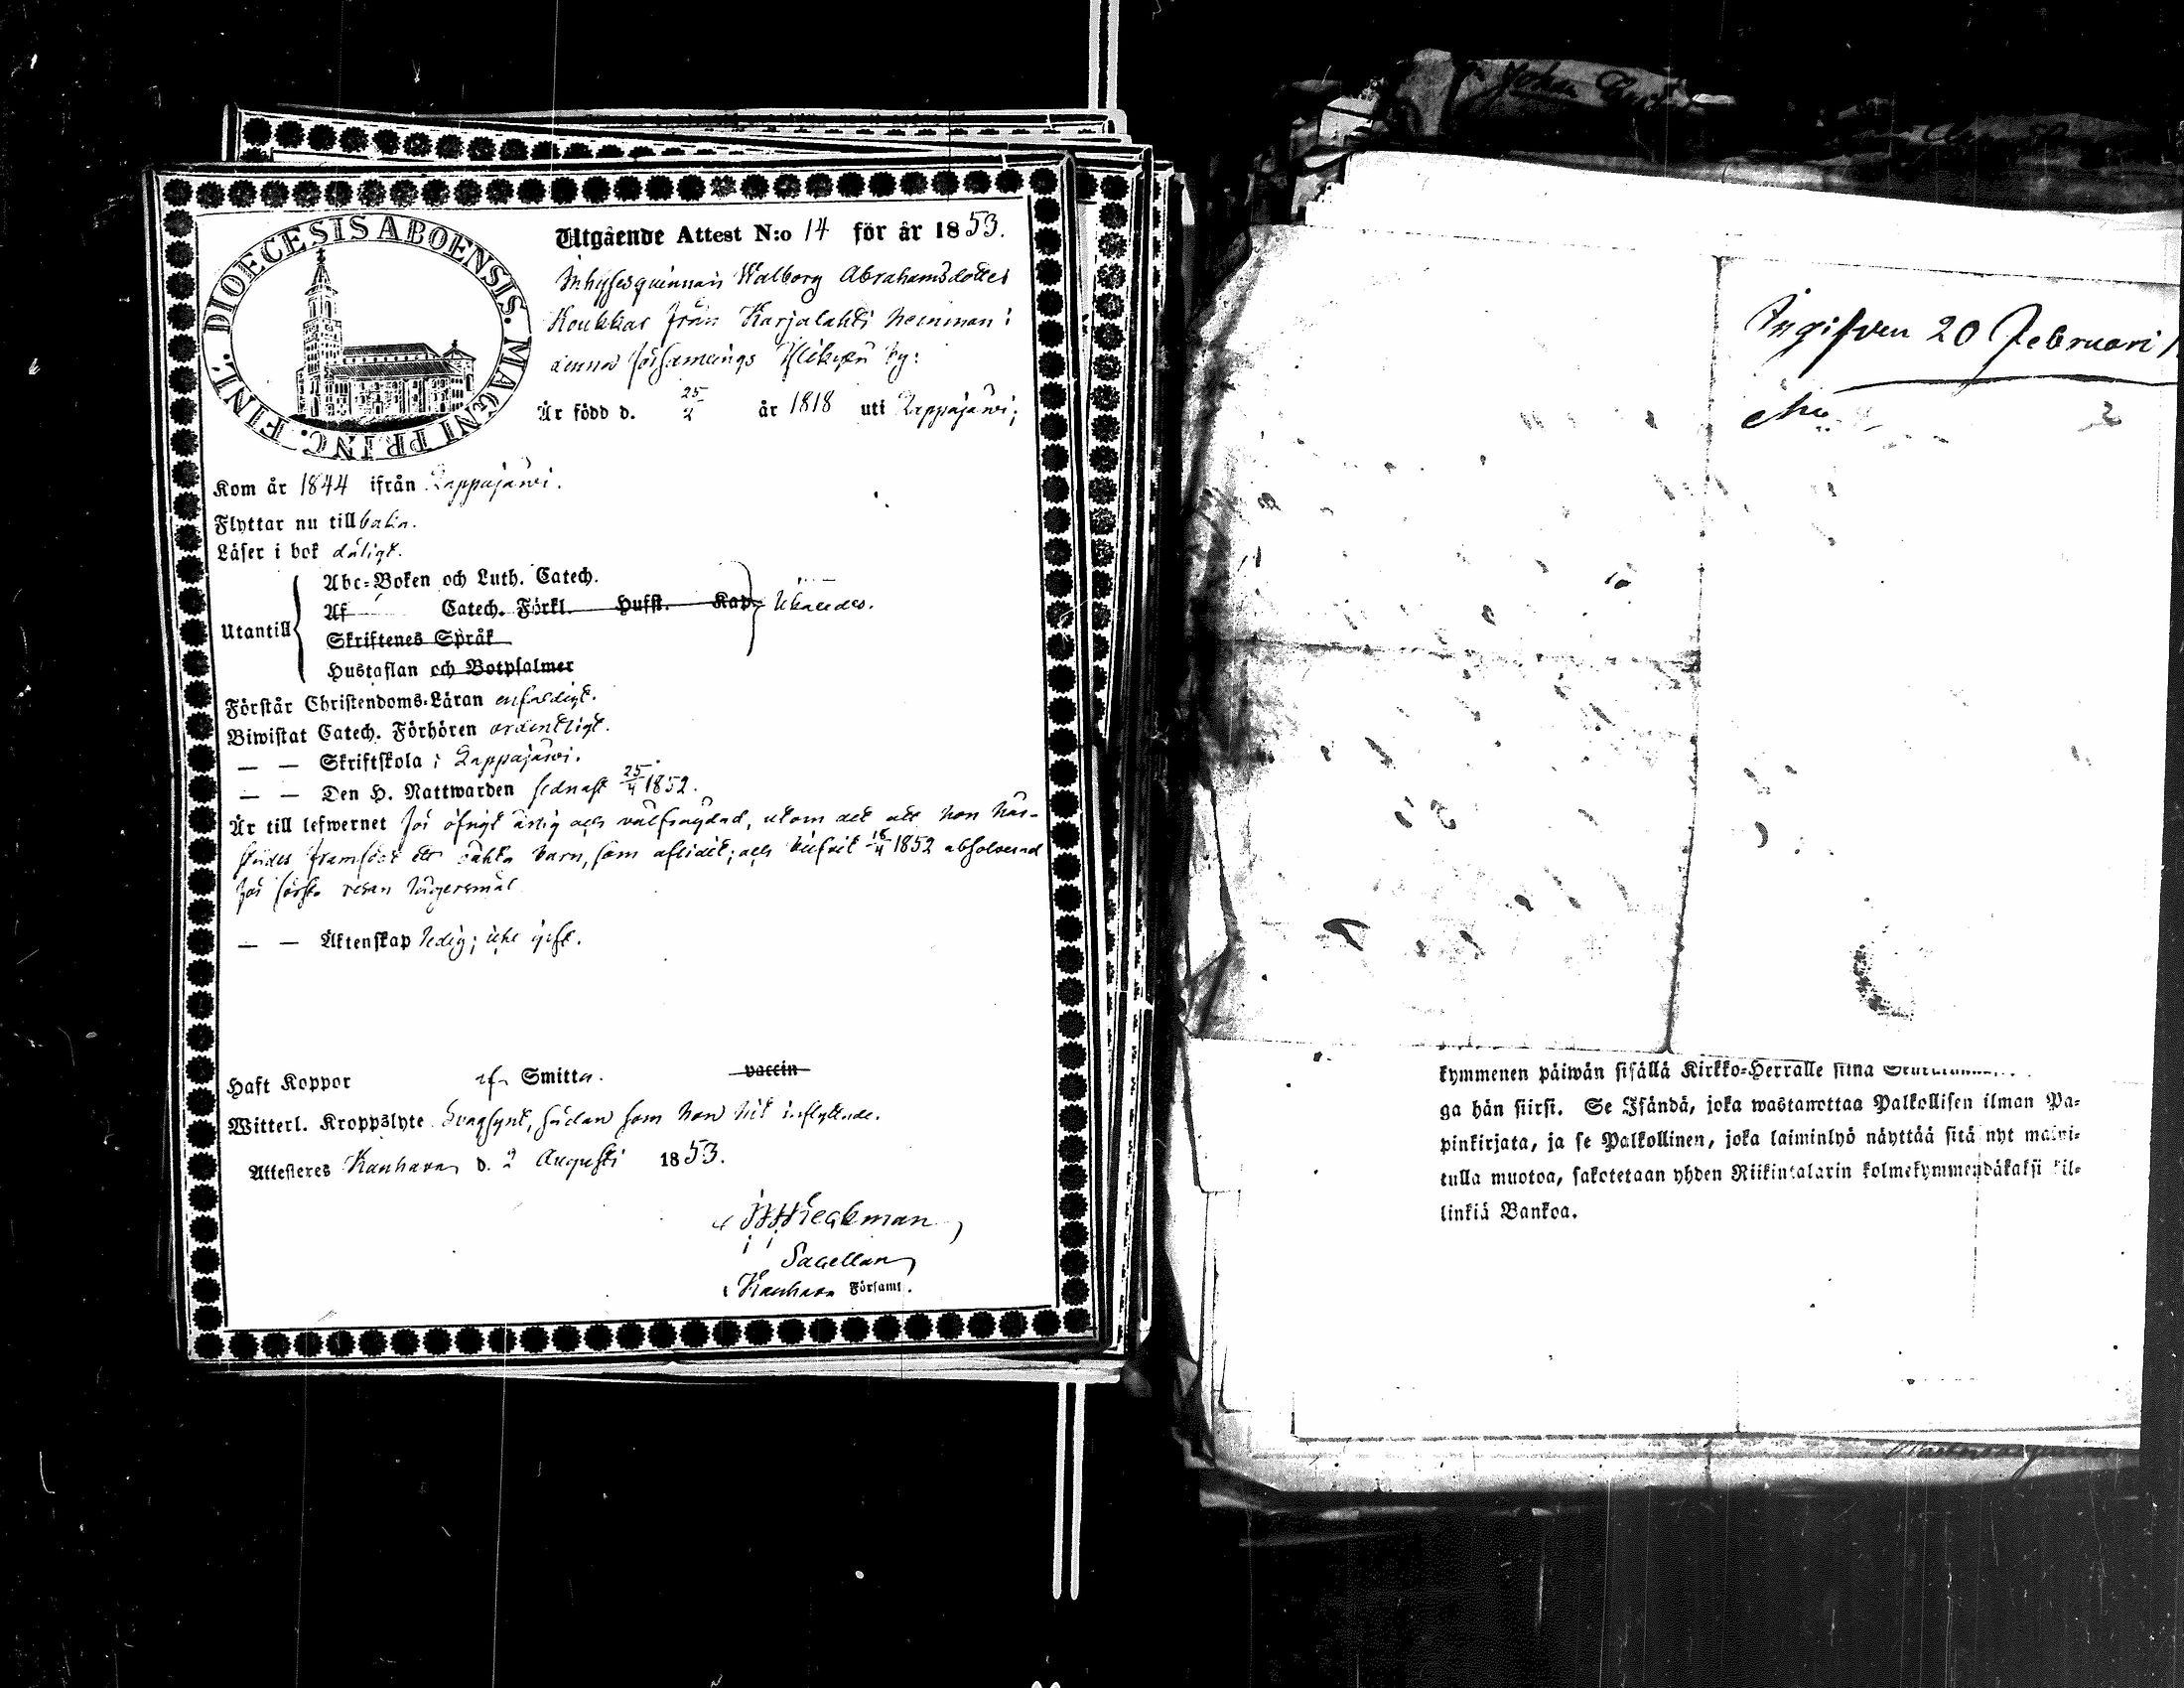 DIOECESIS ABOENSIS. MAGNI PRINC. FINL.
Utgående Attest N:o 14 för år 1853.
Inhysesqvinnan Walborg Abrahamsdotter
Koukkar från Karjalahti hemman i
denna församlings by:
Är född d. 25/2 år 1818 uti Lappajärvi;
Kom år 1844 ifrån Lappajärvi.
Flyttar nu tillbaka.
Läser i bok dåligt.
Utantill
Abc-Boken och Luth. Catech.
Af Catech. Förkl. Hufst. Kap.
Skriftenes Språk
Hustaflan och Botpsalmer
Förstår Christendoms-Läran enfaldigt.
Biwistat Catech. Förhören ordentligt.
— — Skriftskola i Lappajärvi.
— — Den H. Nattwarden sednast 25/4 1852.
Är till lefwernet för öfrigt ärlig och välfrägdad, utom det att hon här-
städes framfödt ett oäkta barn, som aflidit; och blifvit 18/4 1852 absolverad
för första resan lägersmål
— — Äktenskap ledig; icke gift.
Haft Koppor af Smitta. vaccin
Witterl. Kroppslyte Svagsynt, sådan som hon hit inflyttade.
Attesteres Kauhava d. 2 Augusti 1853.
Sacellan
Kauhava Församl.
Ingifven 20 Februari
kymmenen päiwän sisällä Kirkko-Herralle siinä
ga hän siirsi. Se Isändä, joka wastanottaa Palkollisen ilman Pa-
pinkirjata, ja se Palkollinen, joka laiminlyö näyttää sitä nyt maini-
tulla muotoa, sakotetaan yhden Riikintalarin kolmekymmendäkaksi kil-
linkiä Bankoa.